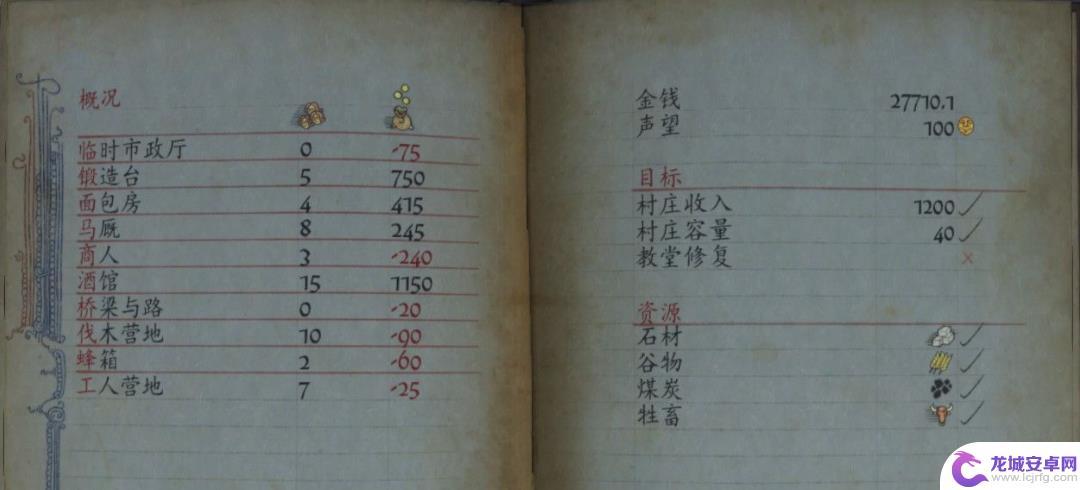 概况
临时市政厅 0 -75
锻造台 5 750
面包房 4 415
马厩 8 245
商人 3 -240
酒馆 15 1150
桥梁与路 0 -20
伐木营地 10 -90
蜂箱 2 -60
工人营地 7 -25
金钱 27710.1
声望 100
目标
村庄收入 1200 ✓
村庄容量 40 ✓
教堂修复 ×
资源
石材 ✓
谷物 ✓
煤炭 ✓
牲畜 ✓
龙城安卓网
www.lcjrfg.com